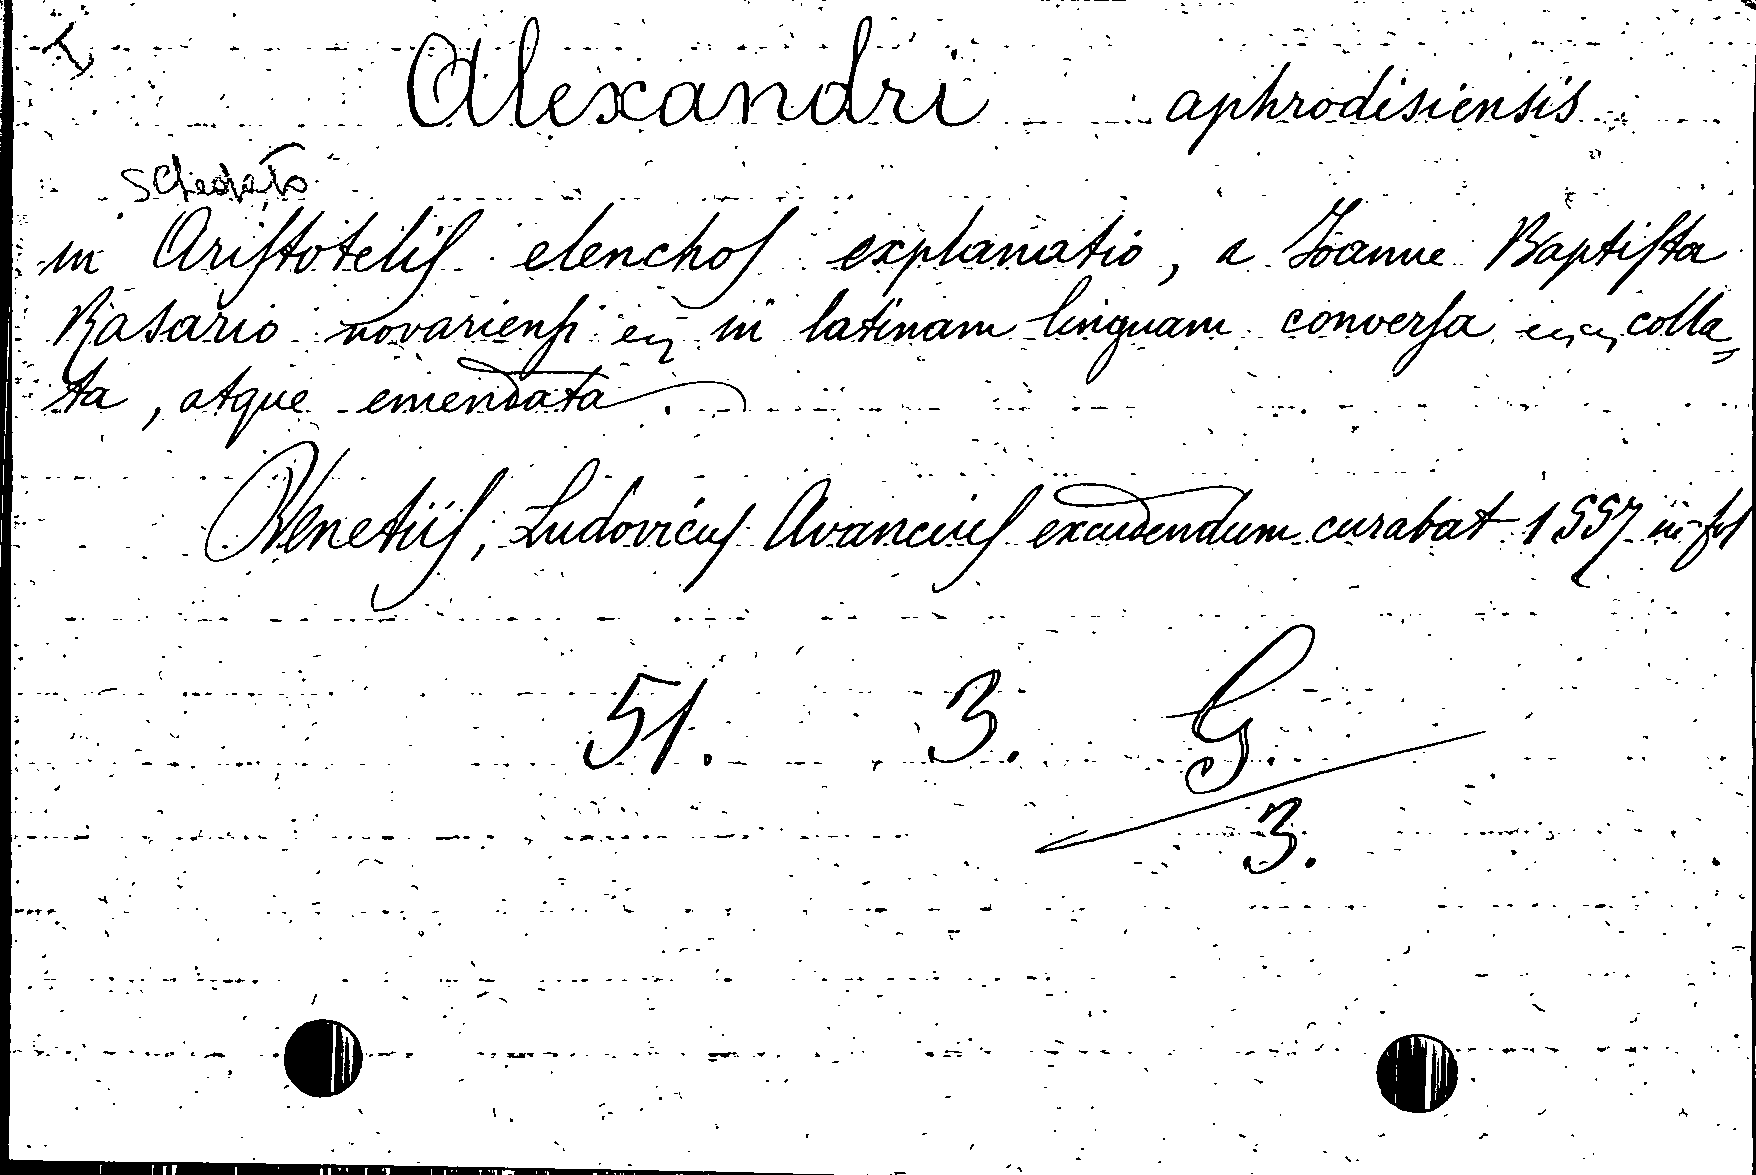 I
Alexandri aphrodisiensis
schedato
in Ariſtoteliſ elenchoſ explanatio, a Ioanne Baptiſta
Rasario novarienſi in latinam linguam converſa colla„
ta, atque emendata.
Venetiiſ, Ludovicuſ Avanciuſ excudendum curabat 1557 in-fol
51. 3. G.
3.